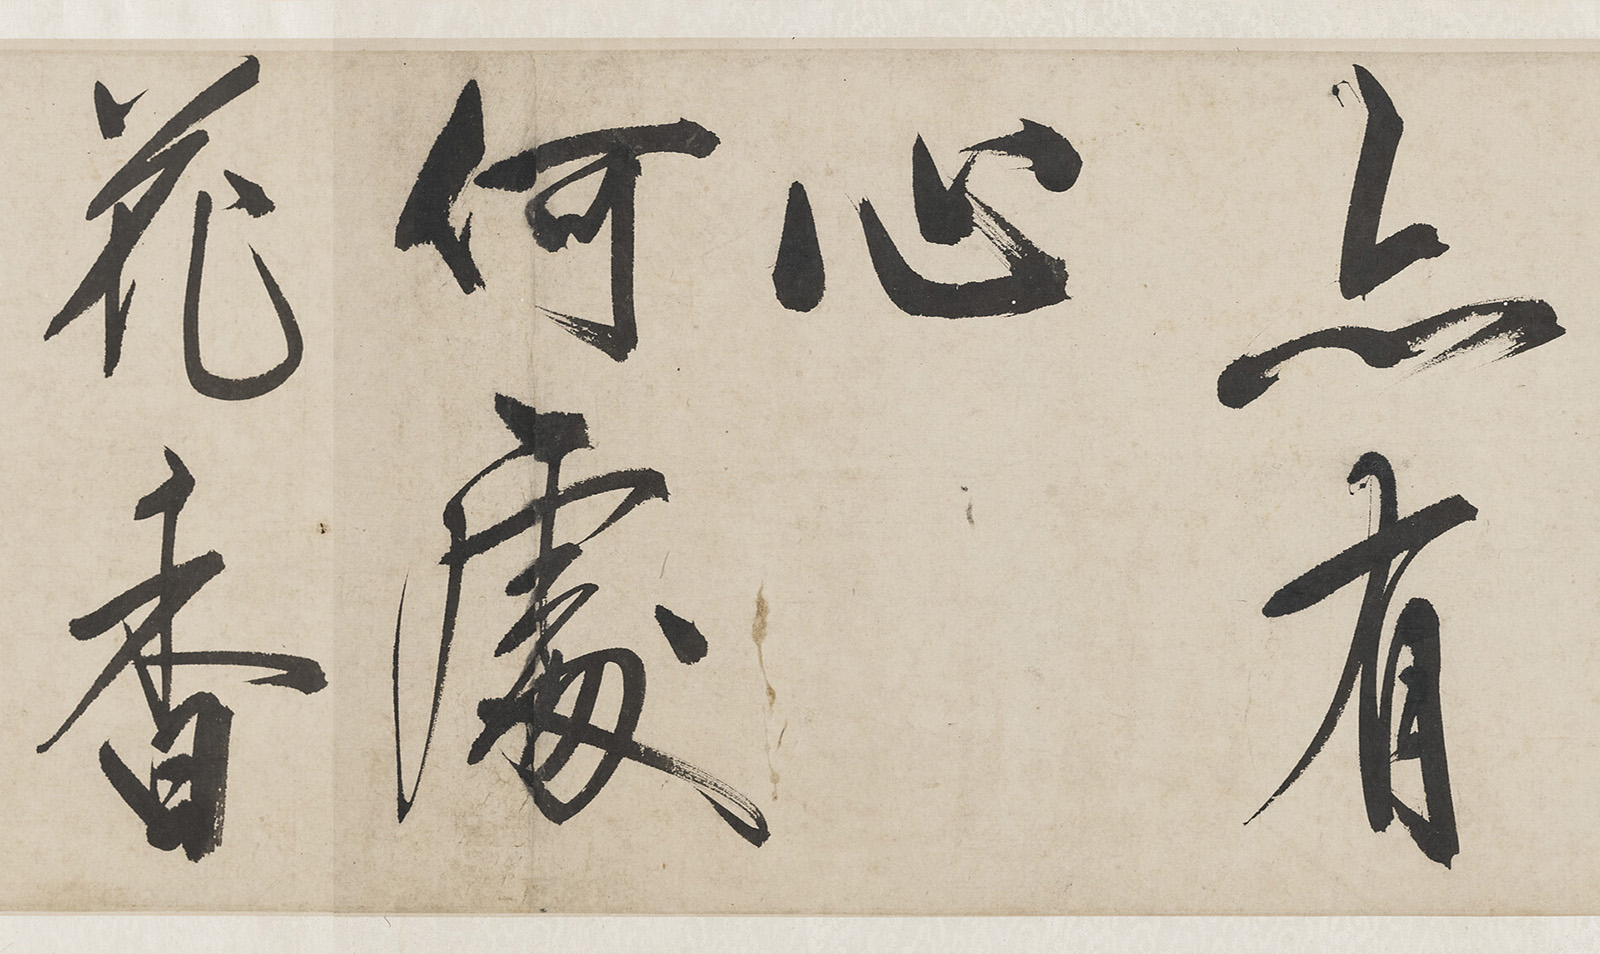 亦有
心
何處
花香